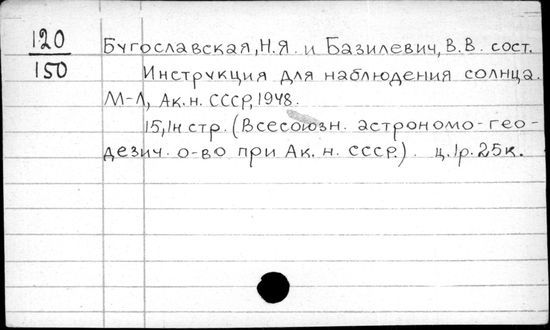 120
150
Бугославская, Н.Я. и Базилевич, В.В. сост.
Инструкция для наблюдения солнца.
М-Л, Ак. н. СССР, 1948.
15, 1н стр. (Всесоюзн. астрономо-гео-
дезич. о-во при Ак. н. СССР.). ц. 1р. 25к.